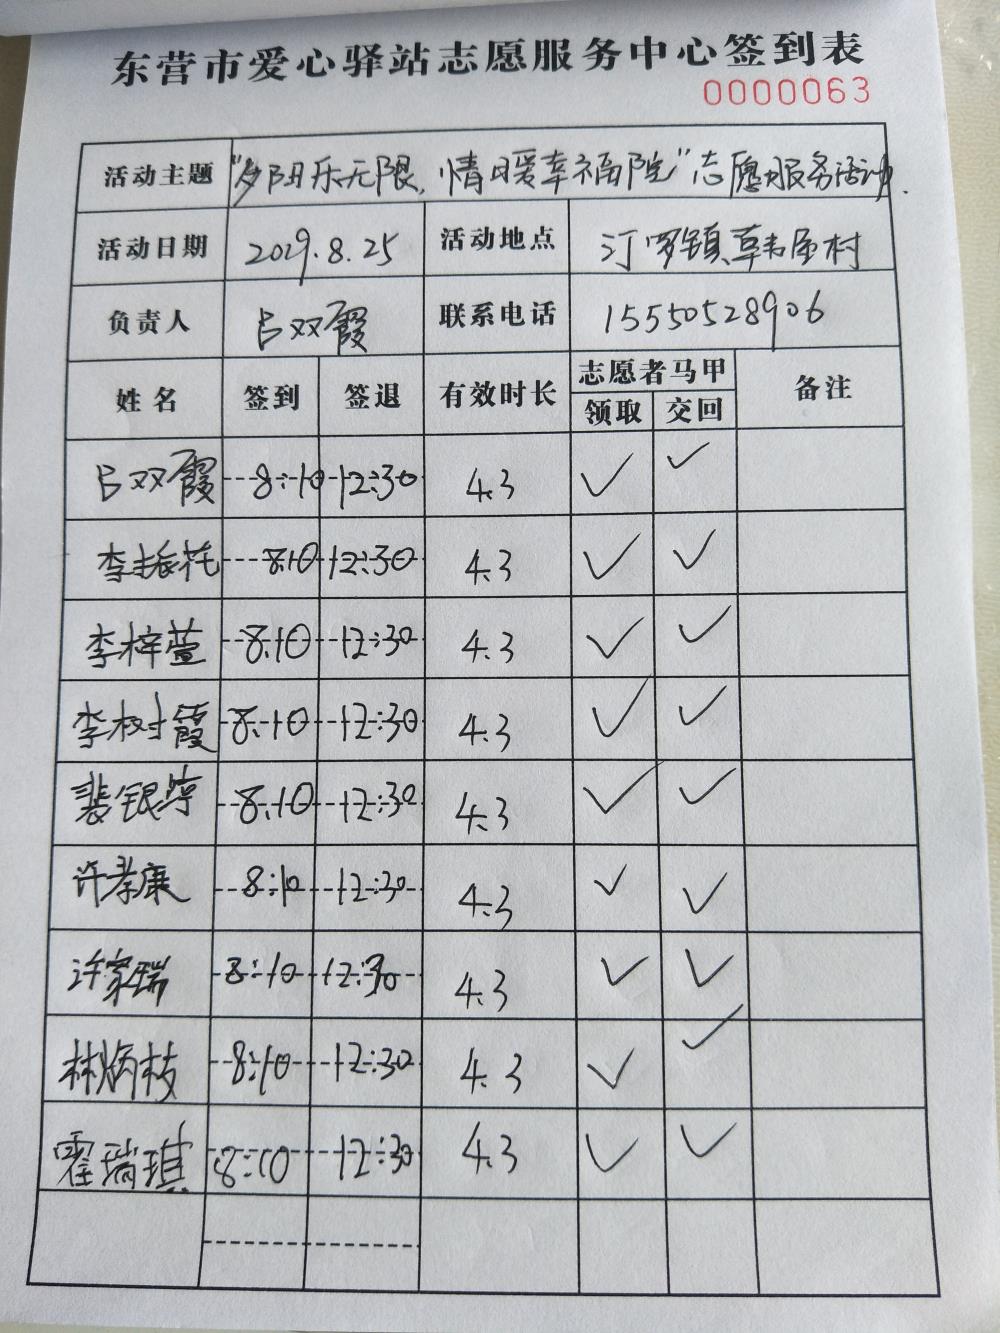 东营市爱心驿站志愿服务中心签到表
0000063
活动主题 "夕阳乐无限,情暖幸福院"志愿服务活动.
活动日期 2019.8.25 活动地点 汀罗镇韩屋村
负责人 吕双霞 联系电话 15550528906
姓名 签到 签退 有效时长 志愿者马甲 备注
领取 交回
吕双霞 8:10 12:30 4.3 ✓ ✓
李振花 8:10 12:30 4.3 ✓ ✓
李梓萱 8:10 12:30 4.3 ✓ ✓
李树霞 8:10 12:30 4.3 ✓ ✓
裴银婷 8:10 12:30 4.3 ✓ ✓
许孝廉 8:10 12:30 4.3 ✓ ✓
许家瑞 8:10 12:30 4.3 ✓ ✓
林炳枝 8:10 12:30 4.3 ✓ ✓
霍瑞琪 8:10 12:30 4.3 ✓ ✓